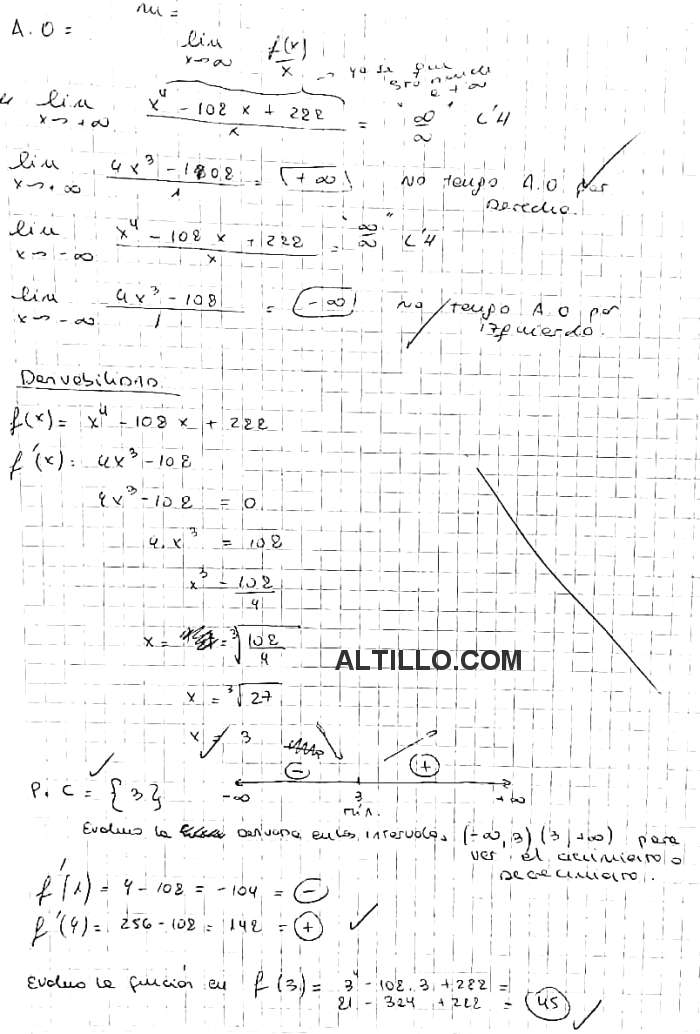 A.O = m =
lim x→∞ f(x)/x
→ ya se que
grande
e +∞
lim x→+∞ (x⁴ - 108x + 288)/x = "∞/∞" L'H
lim x→+∞ (4x³ - 108)/1 = +∞ No tengo A.O por
Derecha.
lim x→-∞ (x⁴ - 108x + 288)/x = "∞/∞" L'H
lim x→-∞ (4x³ - 108)/1 = -∞ No tengo A.O por
izquierda.
Derivabilidad
f(x) = x⁴ - 108x + 288
f'(x) = 4x³ - 108
4x³ - 108 = 0
4.x³ = 108
x³ = 108/4
x = ∛(108/4)
ALTILLO.COM
x = ∛27
x = 3
- +
P.C = {3}
-∞ 3 +∞
mín.
Evaluo la derivada en los intervalos (-∞, 3) (3, +∞) para
ver el crecimiento o
Decrecimiento.
f'(1) = 4 - 108 = -104 = -
f'(4) = 256 - 108 = 148 = +
Evaluo la función en f(3) = 3⁴ - 108.3 + 288 =
81 - 324 + 288 = 45